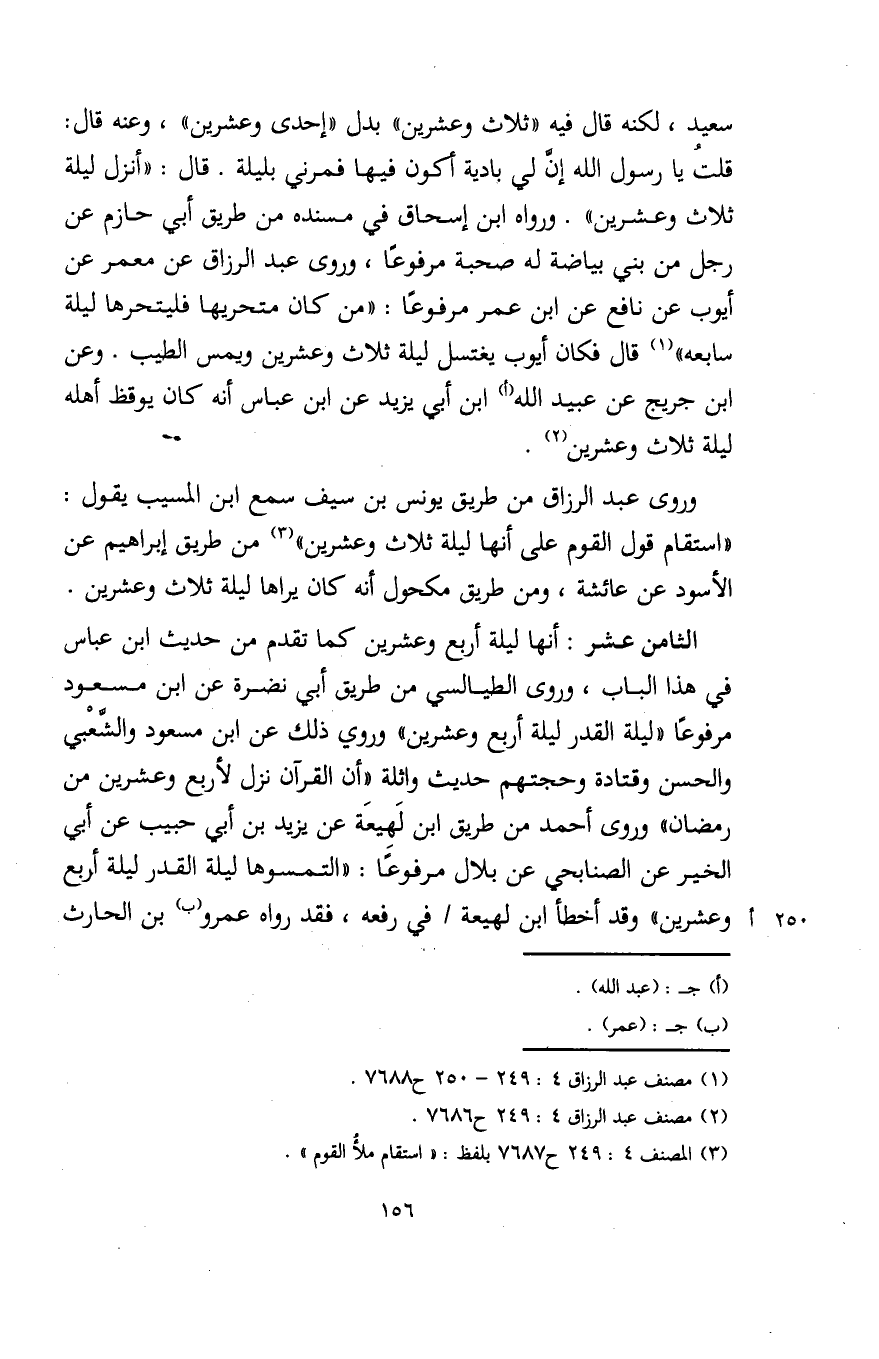 سعيد ، لكنه قال فيه «ثلاث وعشرين» بدل «إحدى وعشرين» ، وعنه قال:
قلتُ يا رسول الله إنَّ لي بادية أكون فيها فمرني بليلة . قال : «أنزل ليلة
ثلاث وعشرين» . ورواه ابن إسحاق في مسنده من طريق أبي حازم عن
رجل من بني بياضة له صحبة مرفوعًا ، وروى عبد الرزاق عن معمر عن
أيوب عن نافع عن ابن عمر مرفوعًا : «من كان متحريها فليتحرها ليلة
سابعه»(١) قال فكان أيوب يغتسل ليلة ثلاث وعشرين ويمس الطيب . وعن
ابن جريج عن عبيد الله(أ) ابن أبي يزيد عن ابن عباس أنه كان يوقظ أهله
ليلة ثلاث وعشرين(٢) .
وروى عبد الرزاق من طريق يونس بن سيف سمع ابن المسيب يقول :
«استقام قول القوم على أنها ليلة ثلاث وعشرين»(٣) من طريق إبراهيم عن
الأسود عن عائشة ، ومن طريق مكحول أنه كان يراها ليلة ثلاث وعشرين .
الثامن عشر : أنها ليلة أربع وعشرين كما تقدم من حديث ابن عباس
في هذا الباب ، وروى الطيالسي من طريق أبي نضرة عن ابن مسعود
مرفوعًا «ليلة القدر ليلة أربع وعشرين» وروي ذلك عن ابن مسعود والشَّعْبي
والحسن وقتادة وحجتهم حديث واثلة «أن القرآن نزل لأربع وعشرين من
رمضان» وروى أحمد من طريق ابن لَهِيعَة عن يزيد بن أبي حبيب عن أبي
الخير عن الصنابحي عن بلال مرفوعًا : «التمسوها ليلة القدر ليلة أربع
٢٥٠ أ وعشرين» وقد أخطأ ابن لهيعة / في رفعه ، فقد رواه عمرو(ب) بن الحارث
(أ) جـ : (عبد الله) .
(ب) جـ : (عمر) .
(١) مصنف عبد الرزاق ٤ : ٢٤٩ – ٢٥٠ ح٧٦٨٨ .
(٢) مصنف عبد الرزاق ٤ : ٢٤٩ ح٧٦٨٦ .
(٣) المصنف ٤ : ٢٤٩ ح٧٦٨٧ بلفظ : « استقام ملأُ القوم » .
١٥٦